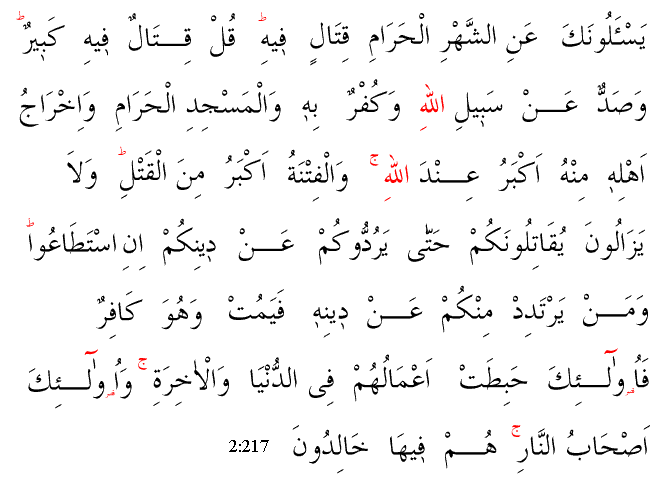 يَسْـَٔلُونَكَ عَنِ الشَّهْرِ الْحَرَامِ قِتَالٍ فٖيهِۜ قُلْ قِتَالٌ فٖيهِ كَبٖيرٌۜ
وَصَدٌّ عَنْ سَبٖيلِ اللّٰهِ وَكُفْرٌ بِهٖ وَالْمَسْجِدِ الْحَرَامِ وَاِخْرَاجُ
اَهْلِهٖ مِنْهُ اَكْبَرُ عِنْدَ اللّٰهِۚ وَالْفِتْنَةُ اَكْبَرُ مِنَ الْقَتْلِۜ وَلَا
يَزَالُونَ يُقَاتِلُونَكُمْ حَتّٰى يَرُدُّوكُمْ عَنْ دٖينِكُمْ اِنِ اسْتَطَاعُواۜ
وَمَنْ يَرْتَدِدْ مِنْكُمْ عَنْ دٖينِهٖ فَيَمُتْ وَهُوَ كَافِرٌ
فَاُو۬لٰٓئِكَ حَبِطَتْ اَعْمَالُهُمْ فِى الدُّنْيَا وَالْاٰخِرَةِۚ وَاُو۬لٰٓئِكَ
اَصْحَابُ النَّارِۚ هُمْ فٖيهَا خَالِدُونَ 2:217